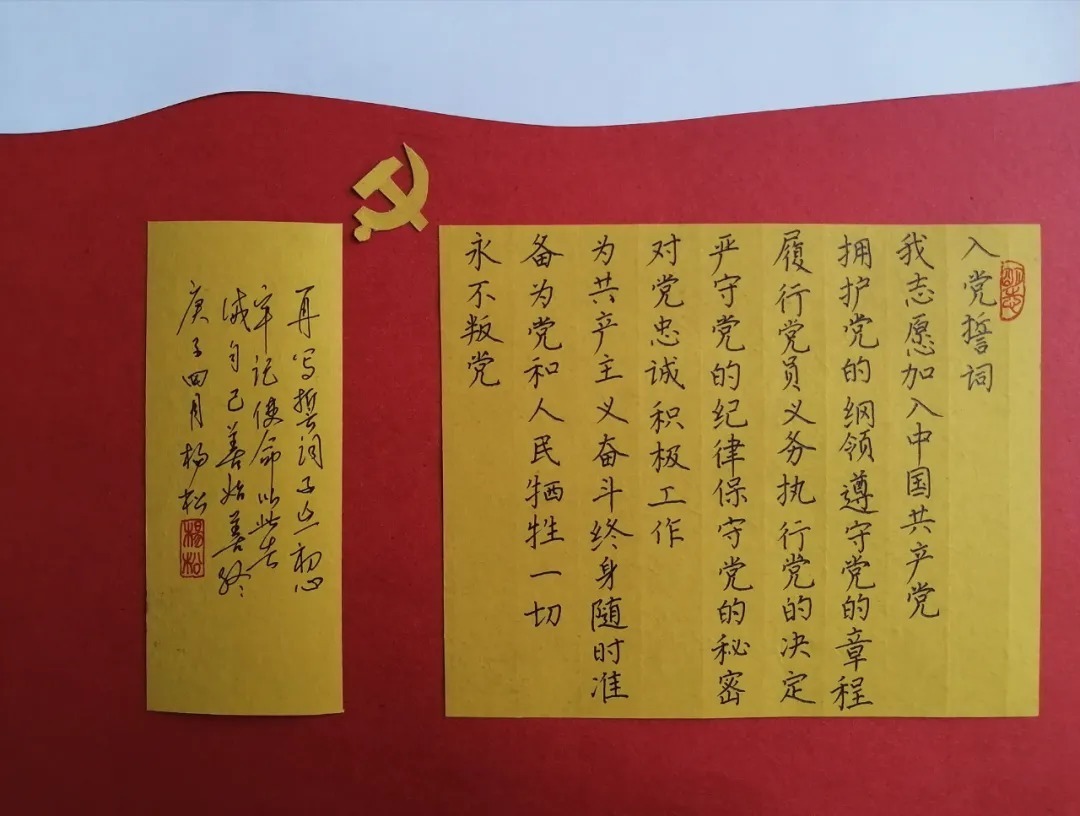 入党誓词
我志愿加入中国共产党
拥护党的纲领遵守党的章程
履行党员义务执行党的决定
严守党的纪律保守党的秘密
对党忠诚积极工作
为共产主义奋斗终身随时准
备为党和人民牺牲一切
永不叛党
再写誓词不忘初心
牢记使命以此告
诫自己善始善终
庚子四月杨松
楊松